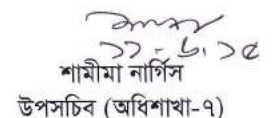 ১১-৬.১৫
শামীমা নার্গিস
উপসচিব (অধিশাখা-৭)